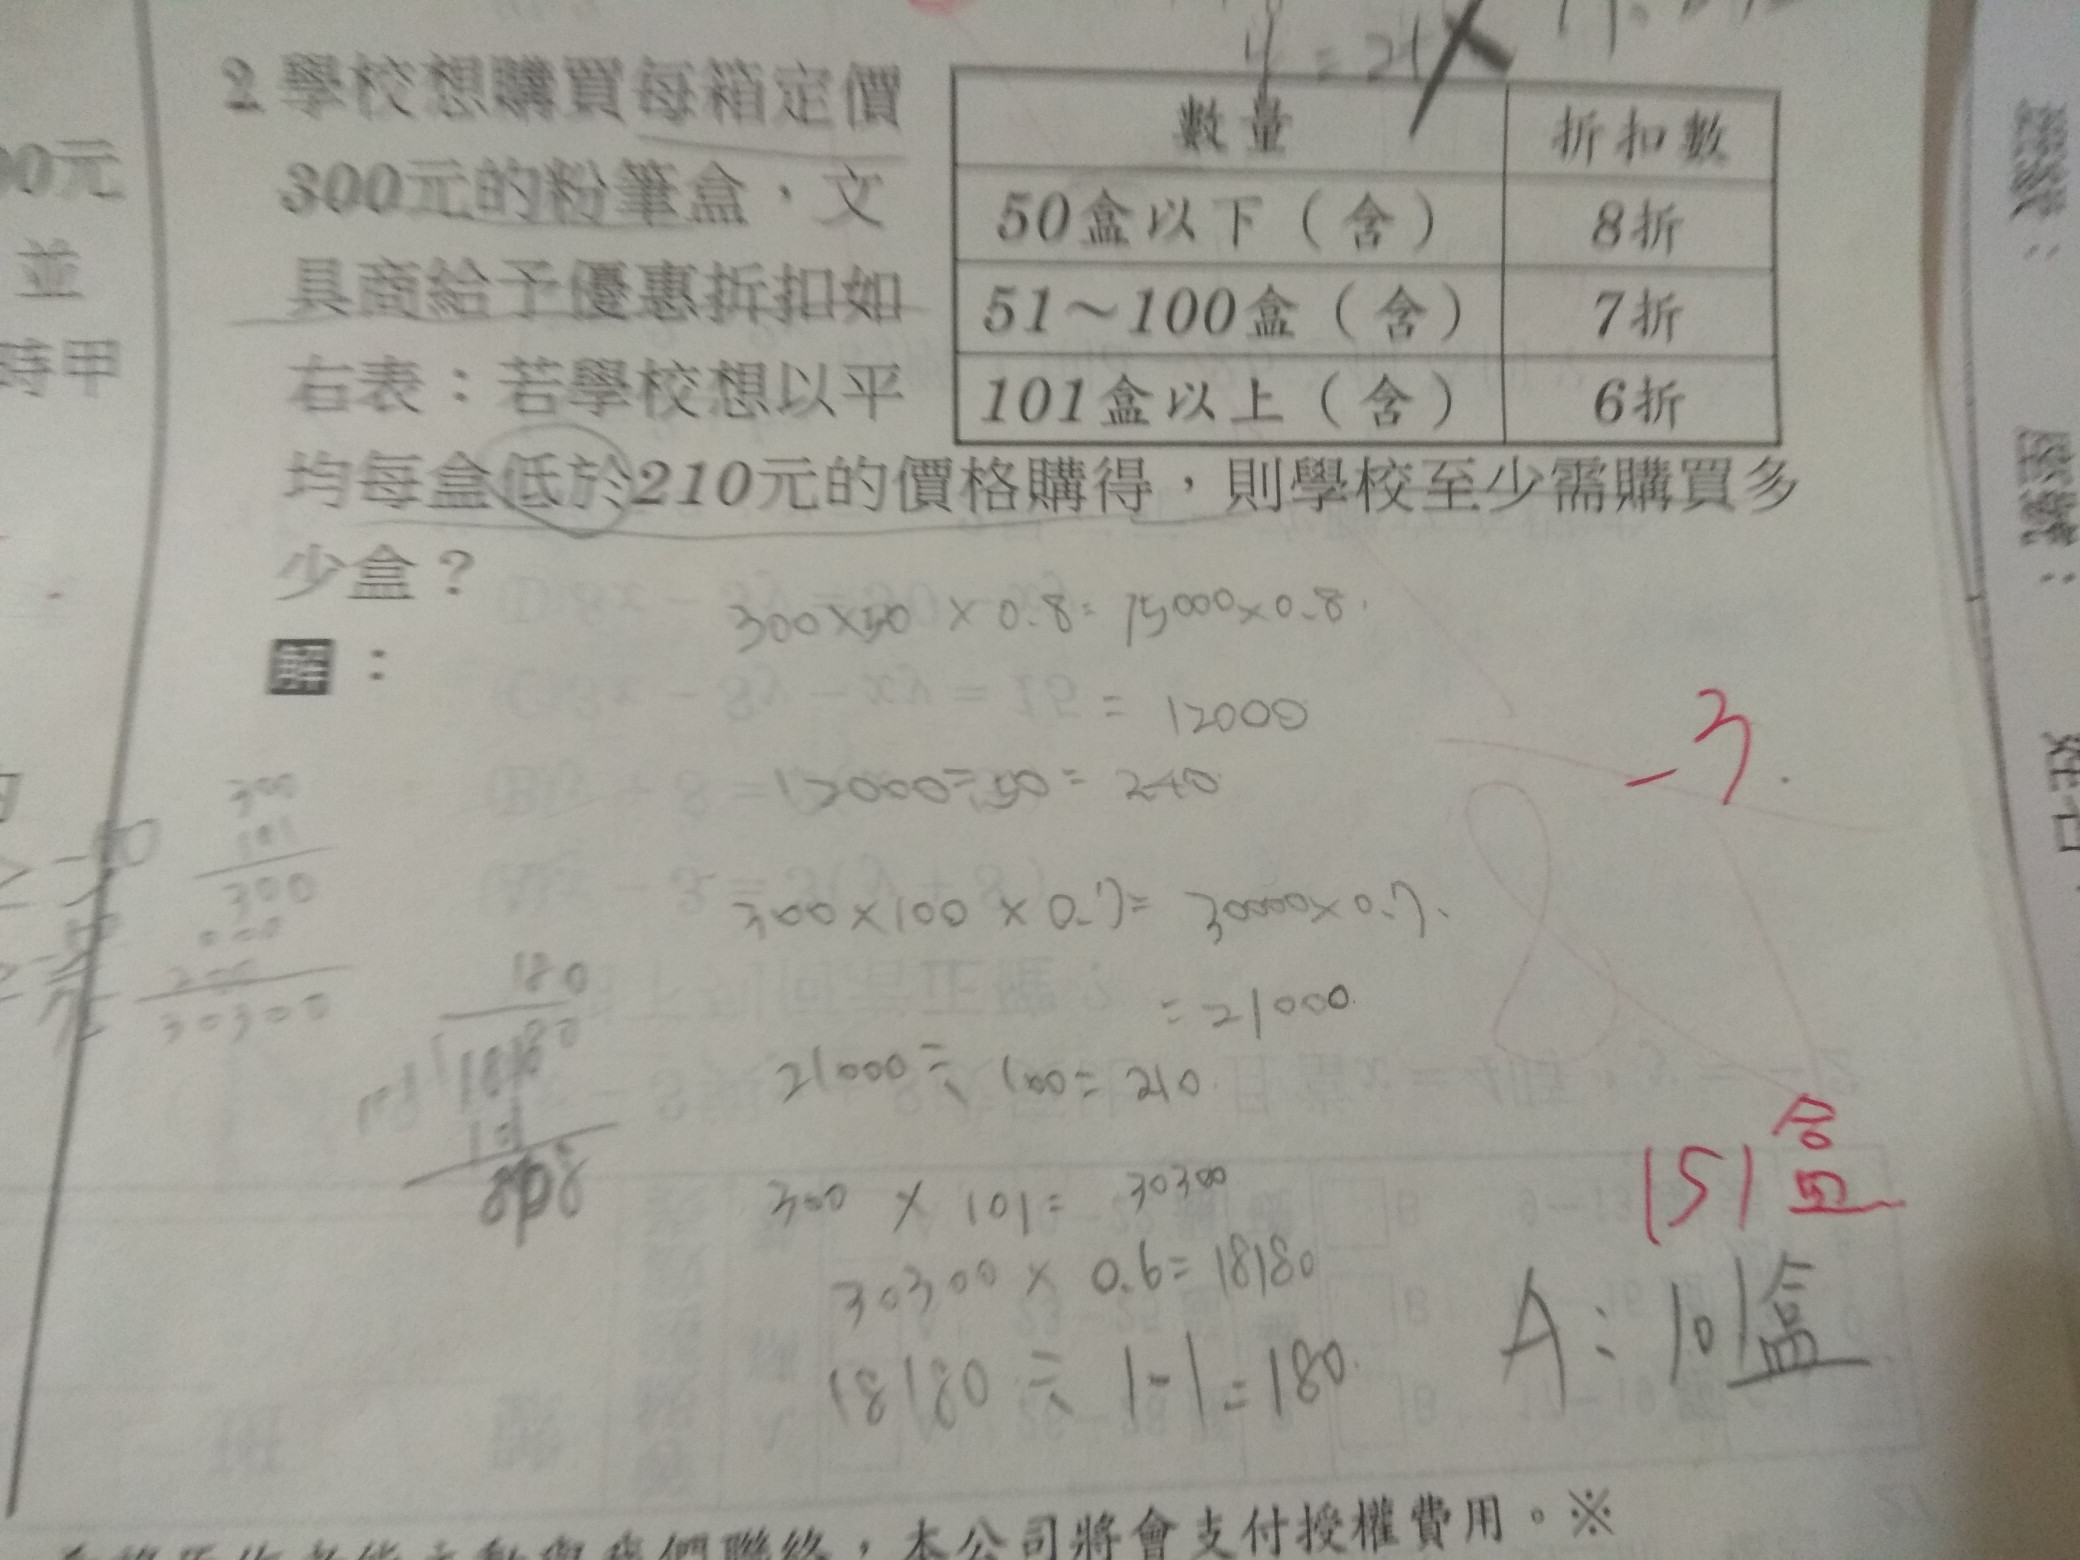 00元
並
時甲
2 學校想購買每箱定價
300元的粉筆盒，文
具商給予優惠折扣如
右表：若學校想以平
均每盒低於210元的價格購得，則學校至少需購買多
少盒？
數量 折扣數
50盒以下（含） 8折
51～100盒（含） 7折
101盒以上（含） 6折
解：
300×50×0.8=15000×0.8
=12000
12000÷50=240
300×100×0.7=30000×0.7
=21000
21000÷100=210
300×101=30300
30300×0.6=18180
18180÷101=180
300
101
300
000
300
30300
180
101 18180
101
808
-3.
151盒
A：101盒
座號：
姓名：
本公司將會支付授權費用。※